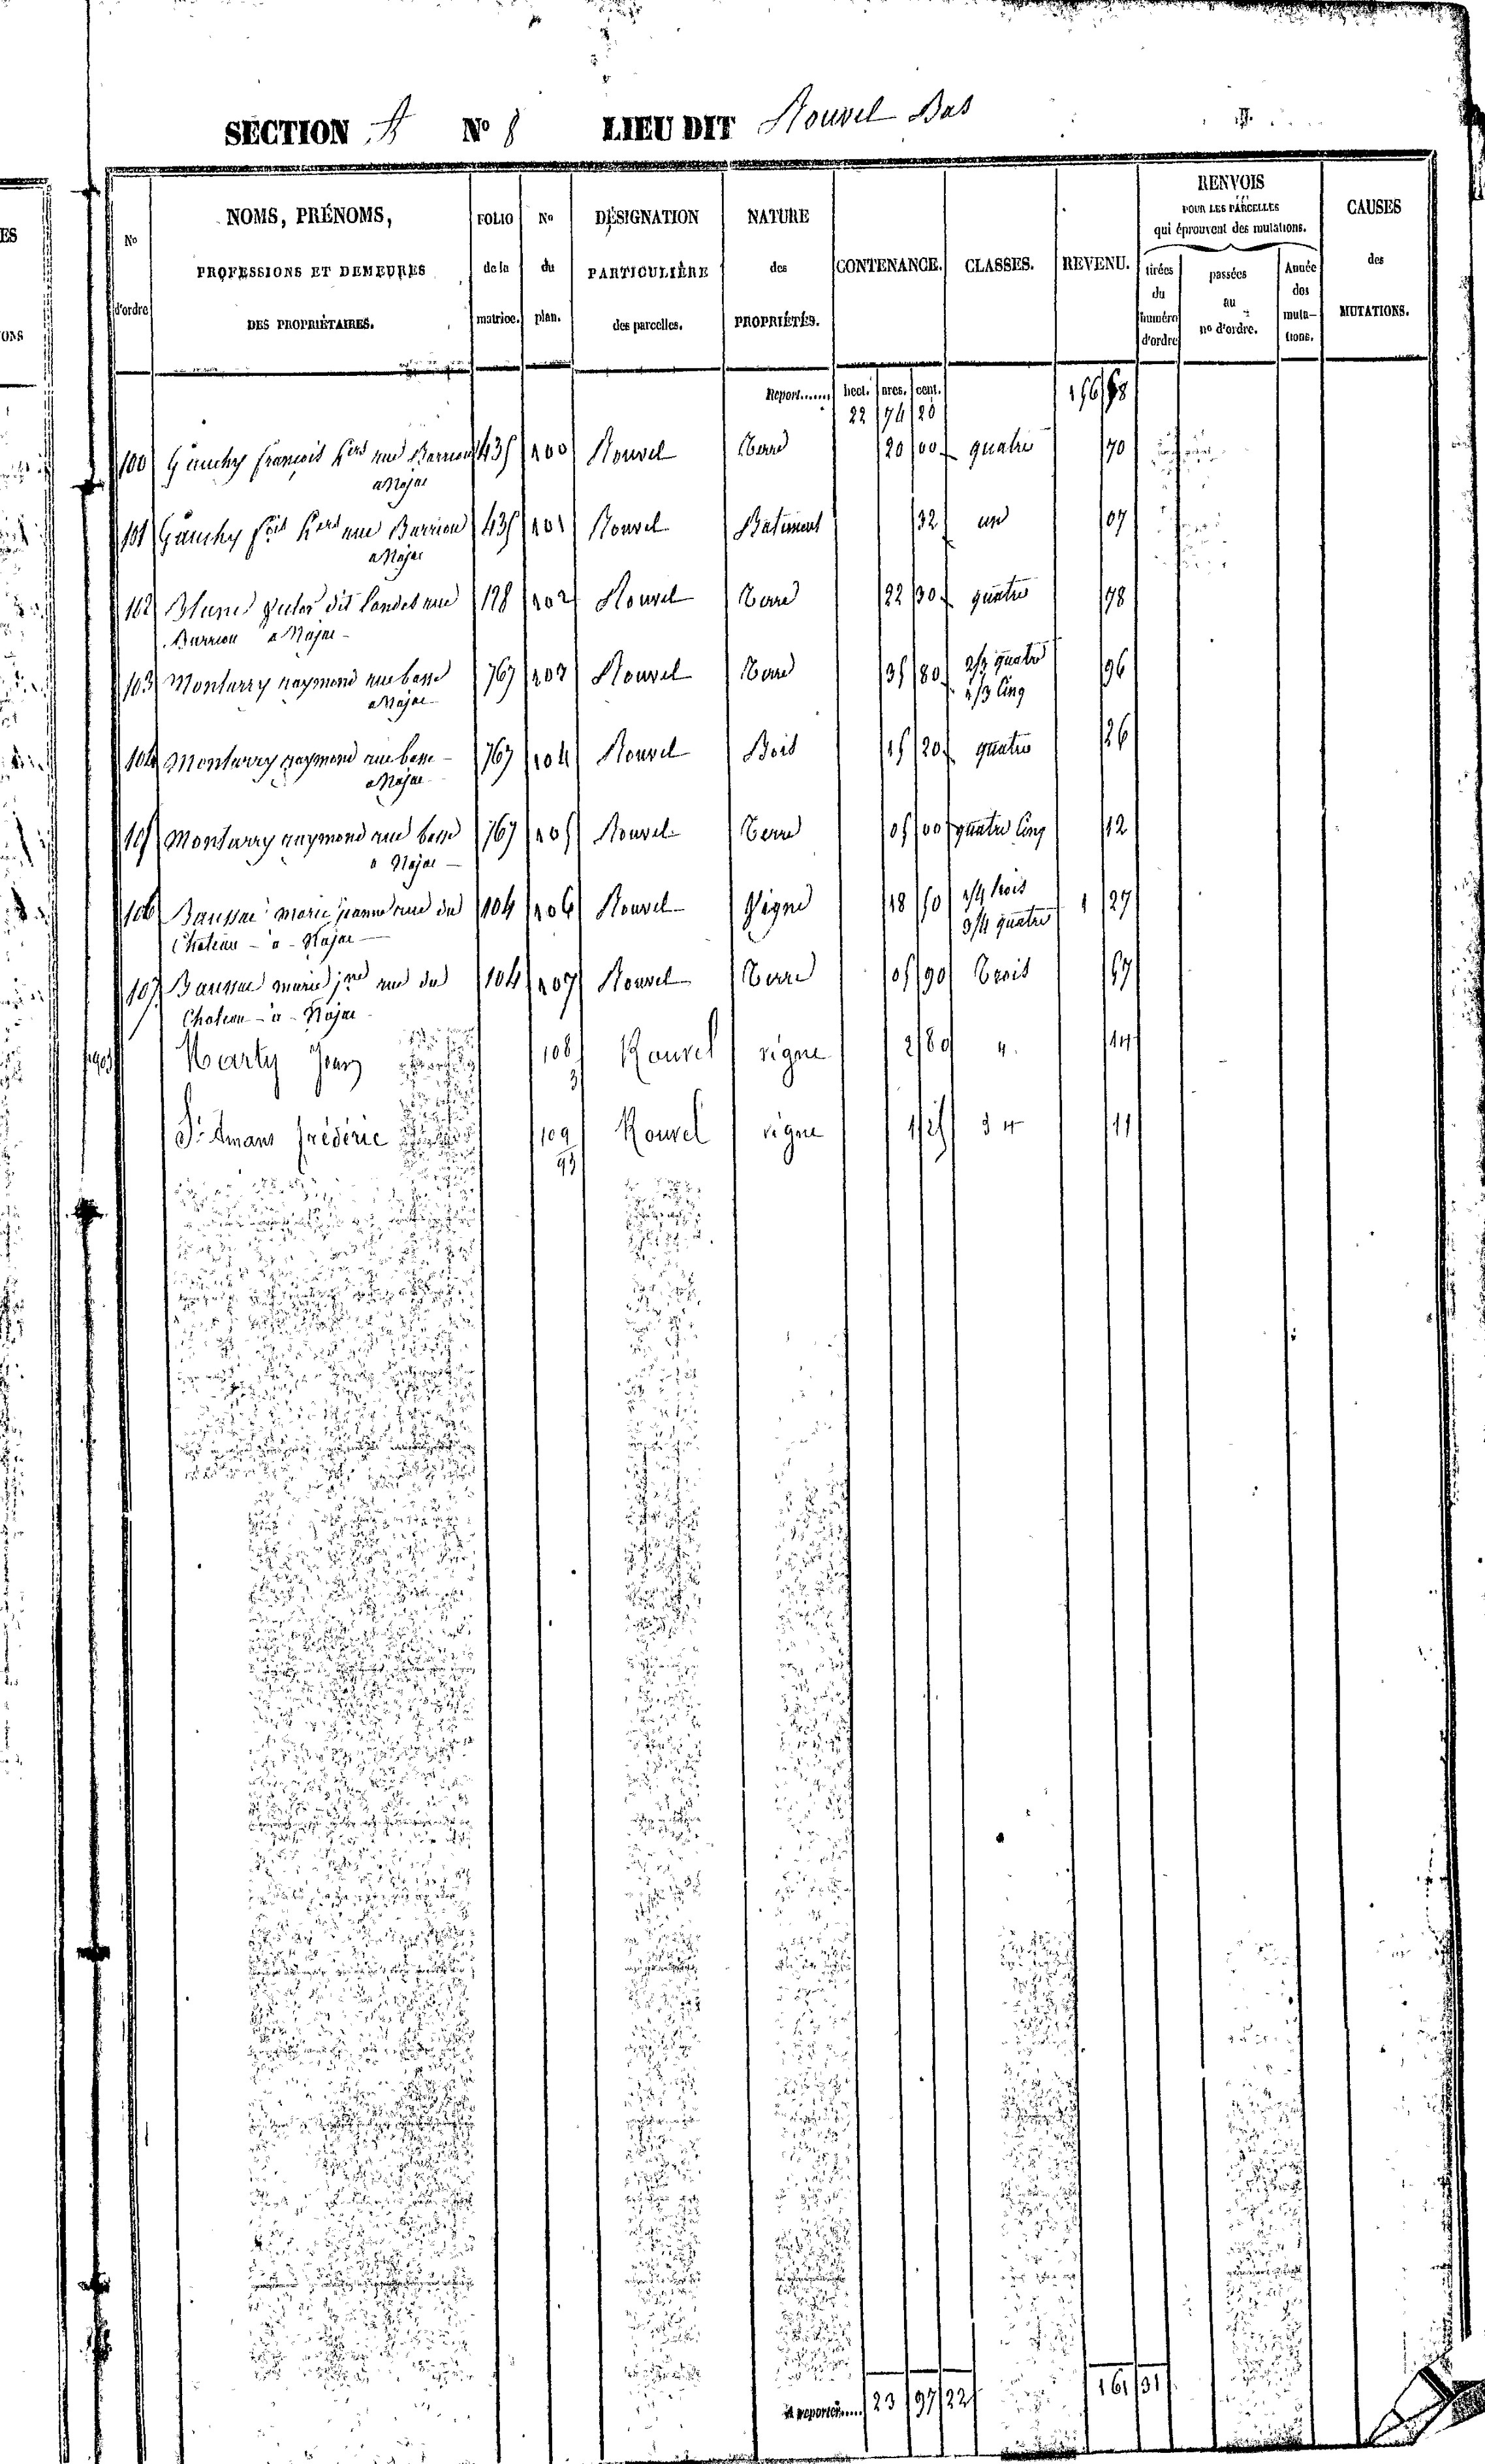 SECTION A N° 8 LIEU DIT Rouvel Bas
N° d'ordre
NOMS, PRÉNOMS, PROFESSIONS ET DEMEURES DES PROPRIÉTAIRES.
FOLIO de la matrice.
N° du plan.
DÉSIGNATION PARTICULIÈRE des parcelles.
NATURE des PROPRIÉTÉS.
CONTENANCE.
CLASSES.
REVENU.
RENVOIS POUR LES PARCELLES qui éprouvent des mutations.
tirées du numéro d'ordre
passées au n° d'ordre.
Année des mutations.
CAUSES des MUTATIONS.
Report...... hect. ares. cent.
22 74 20 156 68
100 Gauchy françois hers rue Barriou 435 100 Rouvel Terre 20 00 quatre 70
a Najac
101 Gauchy fois hers rue Barriou 435 101 Rouvel Batiment 32 un 07
a Najac
102 Blanc victor dit Landes rue 128 102 Rouvel Terre 22 30 quatre 78
Barriou a Najac
103 Monturry raymond rue basse 767 103 Rouvel Terre 35 80 2/3 quatre 96
a Najac 1/3 Cinq
104 Monturry raymond rue basse 767 104 Rouvel Bois 15 20 quatre 26
a Najac
105 Monturry raymond rue basse 767 105 Rouvel Terre 05 00 quatre Cinq 12
a Najac
106 Baussac marie jeanne rue du 104 106 Rouvel Vigne 18 50 1/4 trois 1 27
Chateau - a - Najac 3/4 quatre
107 Baussac marie jne rue du 104 107 Rouvel Terre 05 90 Trois 57
Chateau - a - Najac
1903 Marty Jean 108 Rouvel vigne 2 80 4. 14
3
St Amans frédéric 109 Rouvel vigne 1 25 3 4 11
93
A reporter..... 23 97 22 161 31